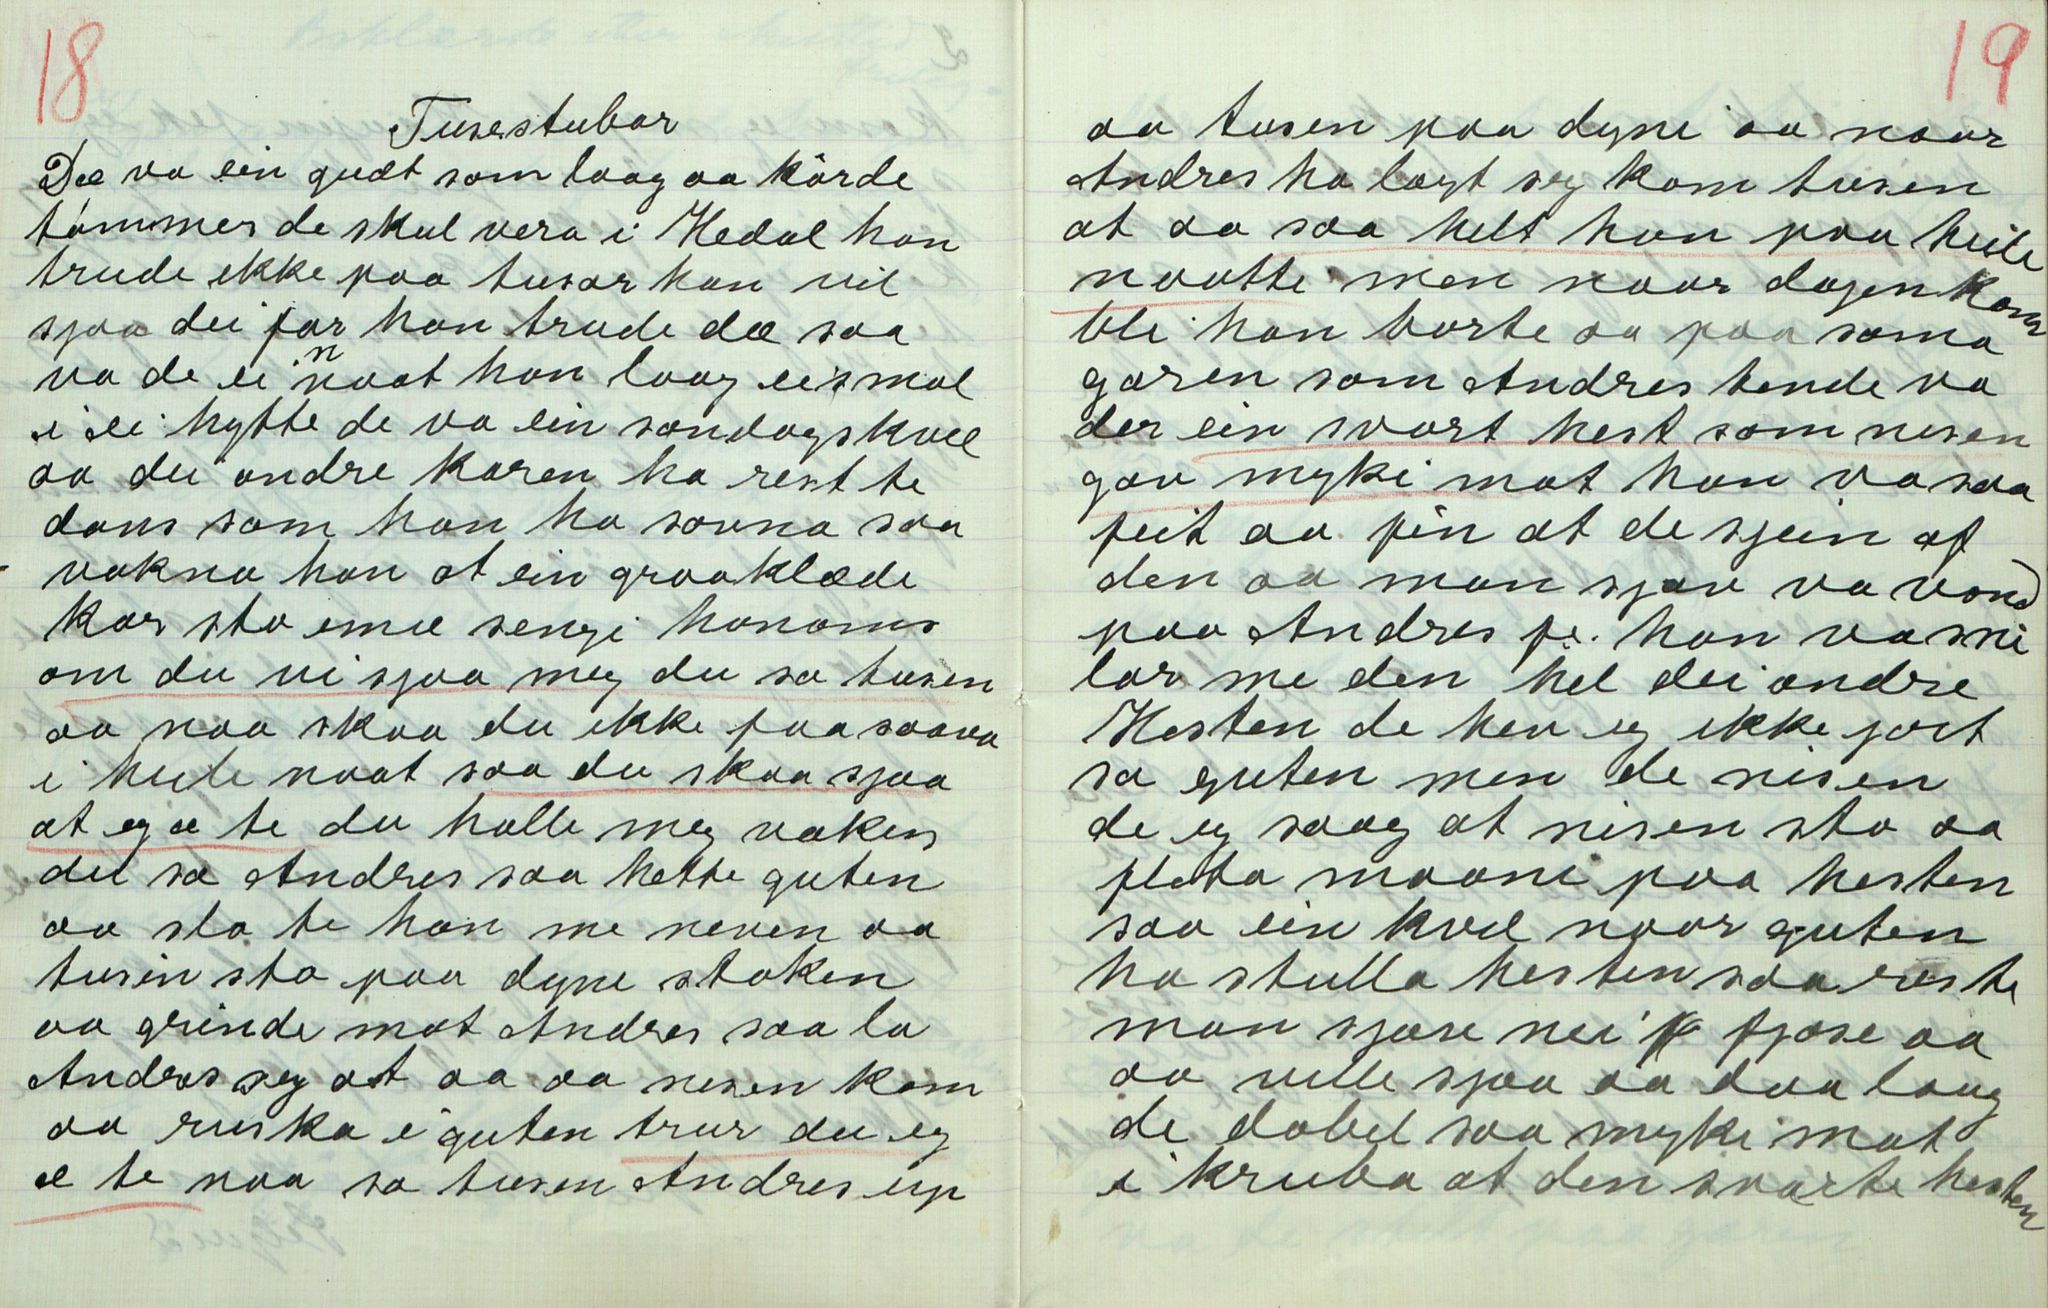 18
Tusestubar
Dæ va ein gudt som laag aa körde
tömmer de skul vera i Hedal han
trude ikke paa tusar han vil
sjaa dei för han trude dæ saa
va de ei n naat han laag eismal
i ei hytte de va ein söndagskvæl
aa dei andre karen ha rest te
dans som han ha sovna saa
vakna han at ein graaklæde
kar sto emæ sengi honoms
om du vi sjaa meg du sa tusen
aa naa skaa du ikke faa saava
i heile naat saa du skaa sjaa
at eg æ te du halle meg vaken
du sa Andres saa hette guten
aa slo te han me neven aa
tusin sto paa dyne stoken
aa grinde mot Andres saa la
Andres seg at aa aa nesen kom
aa ruska i guten trur du eg
æ te naa sa tusen Andres up
19
aa tusen paa dyni aa naar
Andres ha lagt seg kom tusen
at aa saa helt han paa heile
naatte men naar dagen kom
ble han borte aa paa sama
garen som Andres tende va
der ein svart hest som nisen
gav myki mat han va saa
feit aa fin at de sjein af
den aa man sjav va vond
paa Andres fe. han va sni
lar me den hel dei andre
Hesten de hev eg ikke jort
sa guten men de nisen
de eg saag at nisen sto aa
fleta maani paa hesten
saa ein kvæl naar guten
ha stella hesten saa reste
man sjøse nei fjøse aa
aa ville sjaa aa daa laag
de dobel saa myki mat
i kruba at den svarte hesten